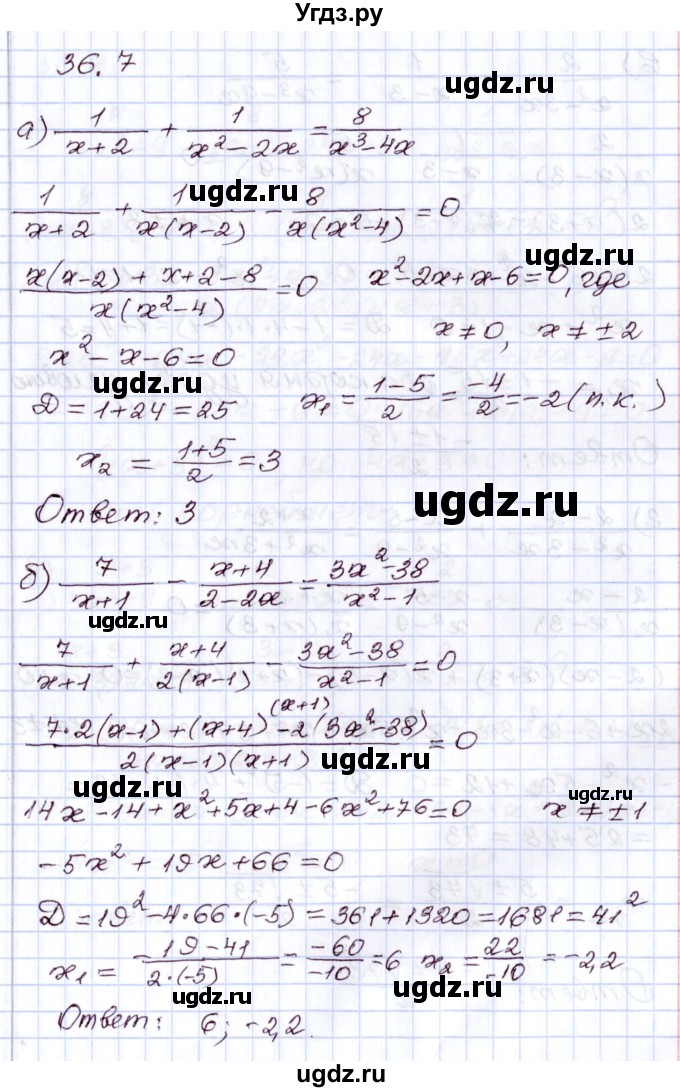 Угдз.ру
36.7
а) 1/(x+2) + 1/(x²-2x) = 8/(x³-4x)
ugdz.ru
1/(x+2) + 1/(x(x-2)) - 8/(x(x²-4)) = 0
ugdz.ru
(x(x-2)+x+2-8)/(x(x²-4)) = 0 x²-2x+x-6=0, где
x≠0, x≠±2
x²-x-6=0
ugdz.ru
D=1+24=25 x₁ = (1-5)/2 = -4/2 = -2 (п.к.)
ugdz.ru
x₂ = (1+5)/2 = 3
ugdz.ru
Ответ: 3
б) 7/(x+1) - (x+4)/(2-2x) = (3x²-38)/(x²-1)
ugdz.ru
ugdz.ru
7/(x+1) + (x+4)/(2(x-1)) - (3x²-38)/(x²-1) = 0
(7·2(x-1)+(x+4)(x+1)-2(3x²-38))/(2(x-1)(x+1)) = 0
ugdz.ru
ugdz.ru
14x-14+x²+5x+4-6x²+76=0 x≠±1
-5x²+19x+66=0
D=19²-4·66·(-5)=361+1320=1681=41²
ugdz.ru
x₁ = (-19-41)/(2·(-5)) = -60/-10 = 6 x₂ = 22/-10 = -2,2
ugdz.ru
Ответ: 6; -2,2.
ugdz.ru